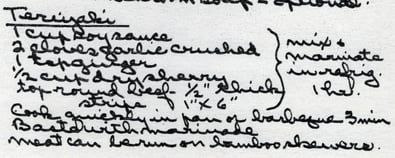 Teriyaki
1 cup soy sauce
2 cloves garlic crushed
1 tsp ginger
½ cup dry sherry
top round beef ½" thick
strips 1" x 6"
mix &
marinate
in refrig.
1 hr.
Cook quickly in pan or barbeque 3 min
Baste with marinade
meat can be run on bamboo skewers.